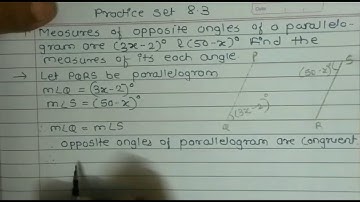 Practice Set 8.3
Date :
1 Measures of opposite angles of a parallelo-
gram are (3x-2)° & (50-x)° Find the
measures of its each angle
→ Let PQRS be parallelogram
P
S
m∠Q = (3x-2)°
(50-x)°
m∠S = (50-x)°
(3x-2)°
Q
R
∴ m∠Q = m∠S
opposite angles of parallelogram are congruent
∴